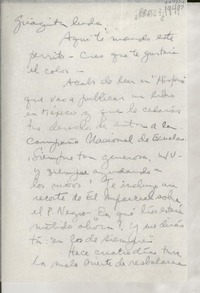 Guaguita linda
Aquí te mando este
perrito - Creo que te gustará
el color -
Acabo de leer en "Hispano"
que vas a publicar un libro
en México y que le cederás
tus derechos de autora a la
Campaña Nacional de Escuelas.
¡Siempre tan generosa,
y siempre ayudando a
los niños! Te incluyo un
recorte de El Imparcial sobre
el P. Negro - En qué líos estás
metido ahora?, y me dirás
tú: en los de siempre.
Hace cuatro días tuve
la mala suerte de resbalarme